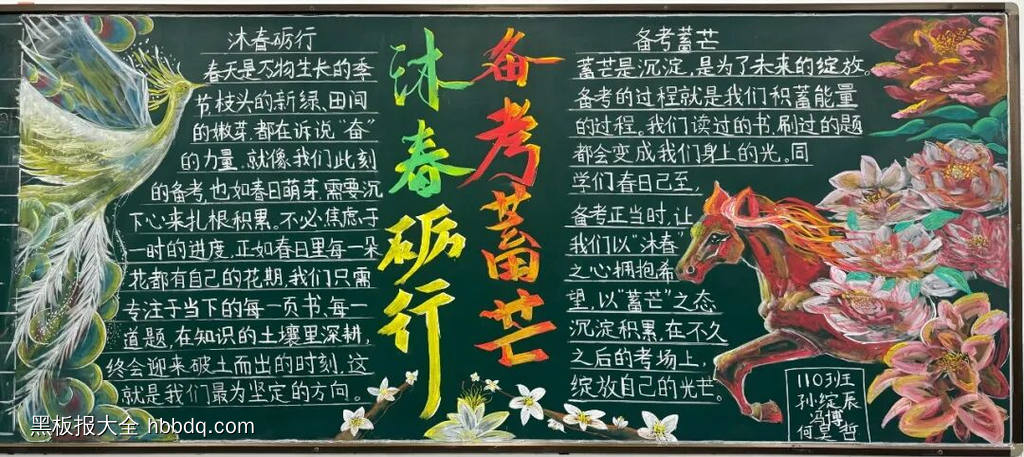 沐春砺行
春天是万物生长的季
节枝头的新绿、田间
的嫩芽,都在诉说“奋”
的力量.就像我们此刻
的备考,也如春日萌芽,需要沉
下心来扎根积累。不必焦虑于
一时的进度,正如春日里每一朵
花都有自己的花期,我们只需
专注于当下的每一页书、每一
道题,在知识的土壤里深耕,
终会迎来破土而出的时刻,这
就是我们最为坚定的方向。
沐春砺行
备考蓄芒
备考蓄芒
蓄芒是沉淀,是为了未来的绽放。
备考的过程就是我们积蓄能量
的过程。我们读过的书,刷过的题
都会变成我们身上的光。同
学们春日已至,
备考正当时,让
我们以“沐春”
之心拥抱希
望,以“蓄芒”之态
沉淀积累,在不久
之后的考场上,
绽放自己的光芒。
110班
孙绽辰
冯博
何昊哲
黑板报大全 hbbdq.com